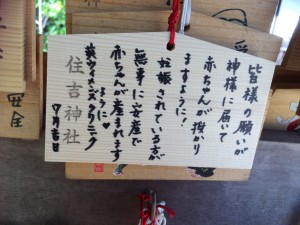 皆様の願いが
神様に届いて
赤ちゃんが授かり
ますように!
妊娠されている方が
無事に安産で
赤ちゃんが産まれます
ように♥
ウィメンズクリニック
住吉神社
安全